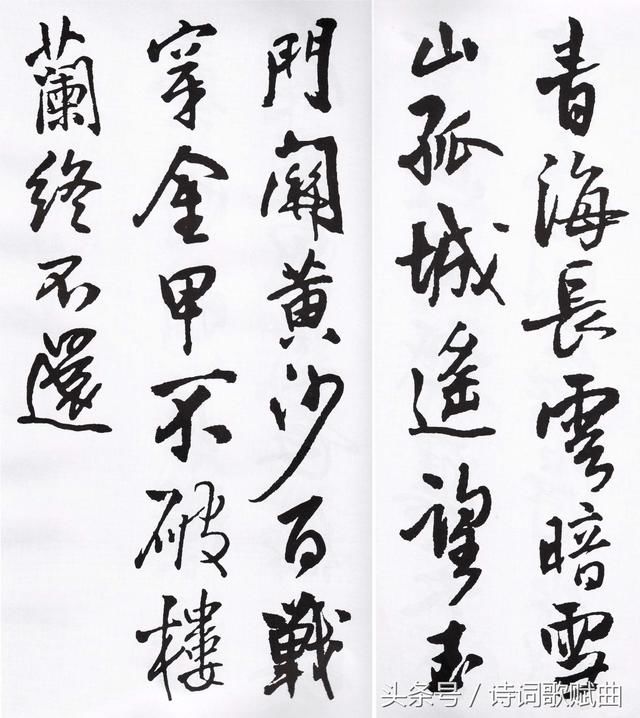 青海長雲暗雪
山孤城遙望玉
門關黄沙百戰
穿金甲不破樓
蘭終不還
头条号 / 诗词歌赋曲